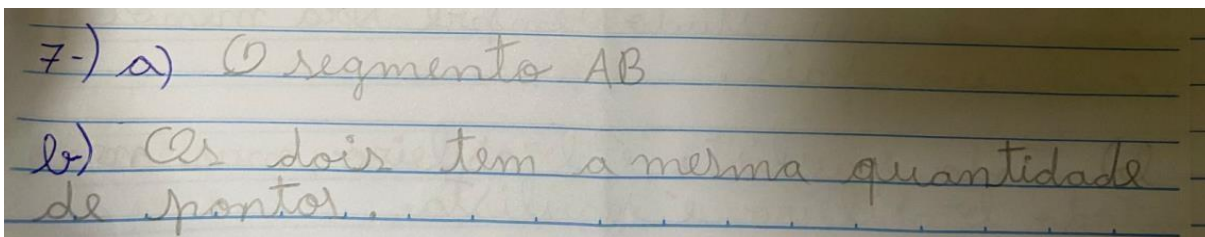 7-) a) O segmento AB
b) Os dois tem a mesma quantidade
de pontos.